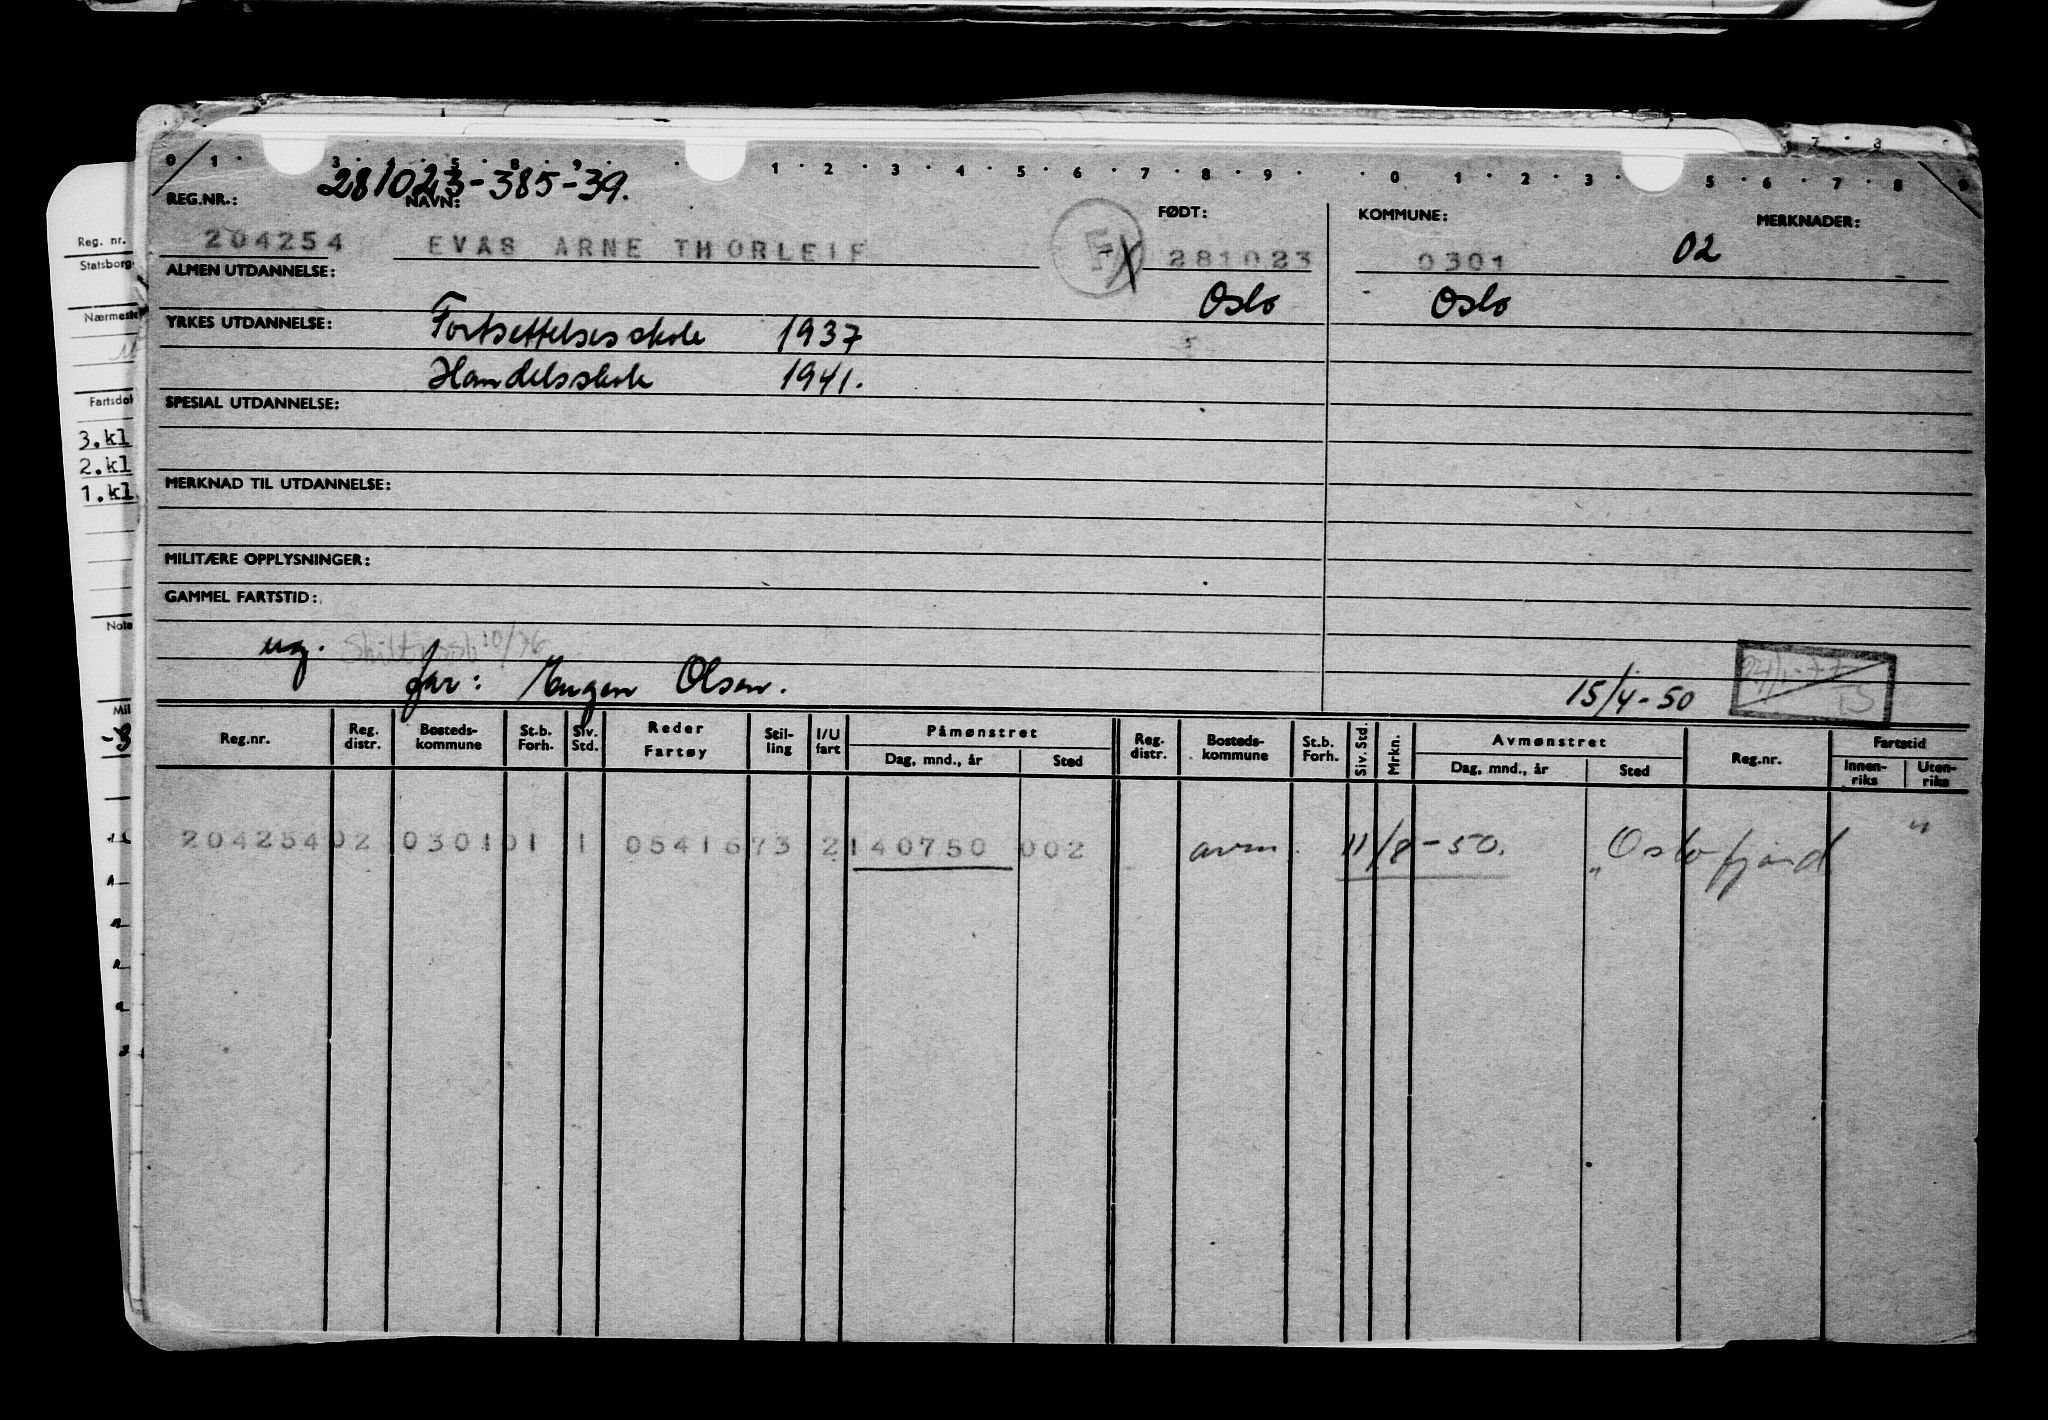 0 1 . 3 . 4 . 5 . 8 . 9 . . 1 . 2 . 3 . 4 . 5 . 6 . 7 . 8 . 9 . . 0 . 1 . 2 . 3 5 . 6 . 7 . 8 . 9
281023-385-39.
REG.NR.: NAVN: FØDT: KOMMUNE: MERKNADER:
204254 EVAS ARNE THORLEIF F 281023 0301 02
ALMEN UTDANNELSE: Oslo Oslo
YRKES UTDANNELSE: Fortsettelsesskole 1937
Handelsskole 1941.
SPESIAL UTDANNELSE:
MERKNAD TIL UTDANNELSE:
MILITÆRE OPPLYSNINGER:
GAMMEL FARTSTID:
ug. 10/76
far: Olsen. 15/4-50
Reg.nr. Reg. distr. Bosteds-kommune St.b. Forh. Siv. Std. Reder Fartøy Stil-ling I/U fart Påmønstret Dag, mnd., år Sted Reg. distr. Bosteds-kommune St.b. Forh. Siv. Std. Mrkn. Avmønstret Dag, mnd., år Sted Reg.nr. Fartstid Innen-riks Uten-riks
204254 02 0301 01 1 0541673 2 140750 002 avm. 11/8-50. "Oslofjord"
Reg. nr.
Statsborg
Nærmeste
Fartsdok
3.kl
2.kl
1.kl
Nota
Mil
-3